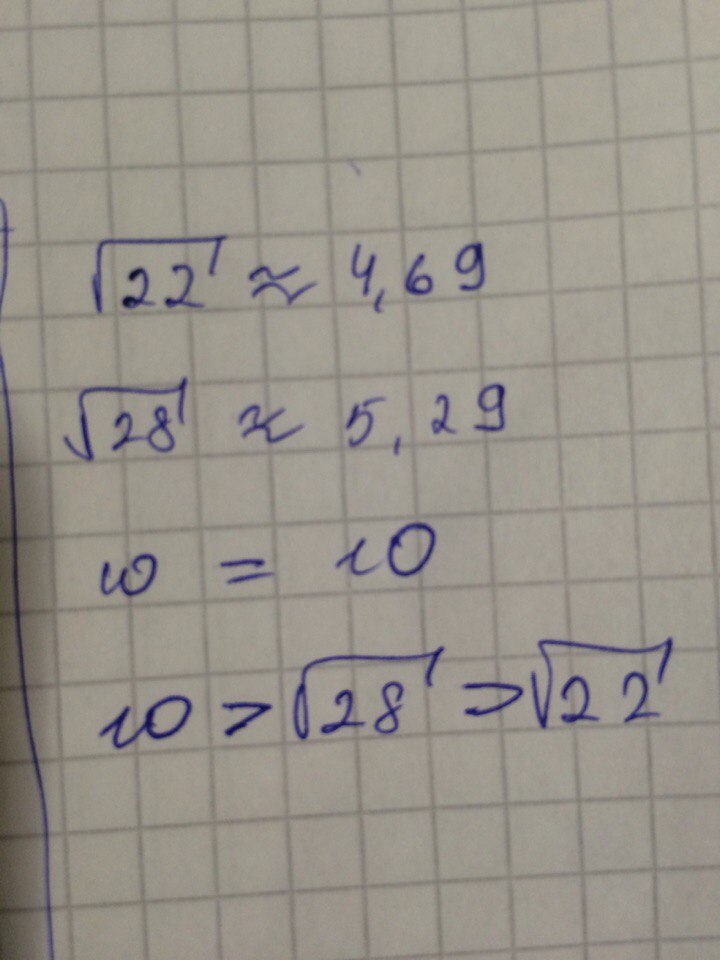 √22 ≈ 4,69
√28 ≈ 5,29
10 = 10
10 > √28 > √22